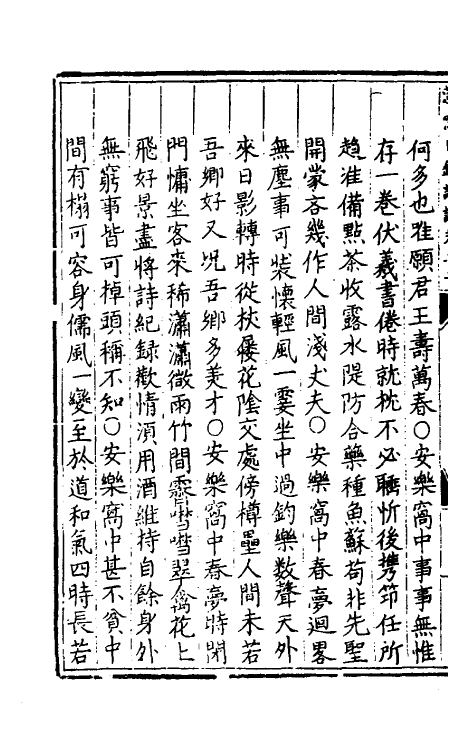 何多也雖願君王壽萬春〇安樂窩中事事無惟
存一卷伏羲書倦時就枕不必睡忻後携笻任所
趨准備點茶收露水隄防合藥種魚蘇苟非先聖
開蒙吝幾作人間淺丈夫〇安樂窩中春夢迴畧
無塵事可裝懷輕風一霎坐中過釣樂数聲天外
來日影轉時從杖屨花陰交處傍樽罍人間未若
吾鄉好又况吾鄉多美才〇安樂窩中春夢時閉
門慵坐客來稀瀟瀟微雨竹間霽嘒嘒翠禽花上
飛好景盡將詩紀録歡情須用酒維持自餘身外
無窮事皆可掉頭稱不知〇安樂窩中甚不貧中
間有榻可容身儒風一變至於道和氣四時長若